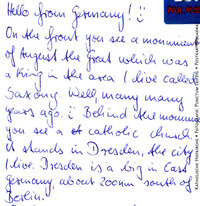 Hello from Germany! :)
On the front you see a monument
of August the Great which was
a King in the area I live called
Saxony. Well, many many
years ago. :) Behind the monument
you see a catholic church.
It stands in Dresden, the city
I live. Dresden is a big in East
Germany, about 200km south of
Berlin.